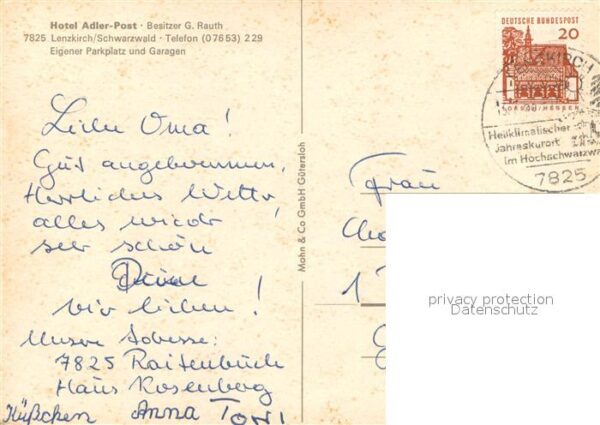 Hotel Adler-Post · Besitzer G. Rauth
7825 Lenzkirch/Schwarzwald · Telefon (07653) 229
Eigener Parkplatz und Garagen
Liebe Oma!
Gut angekommen,
Herrliches Wetter
alles wieder
sehr schön!
Deine
Wir lieben!
Unsere Adresse:
7825 Raitenbuch
Haus Rosenberg
Küßchen Anna Toni
Mohn & Co GmbH Gütersloh
DEUTSCHE BUNDESPOST
20
LORSCH/HESSEN
LENZKIRCH
Heilklimatischer
Jahreskurort
im Hochschwarzwa
7825
Frau
1
privacy protection
Datenschutz